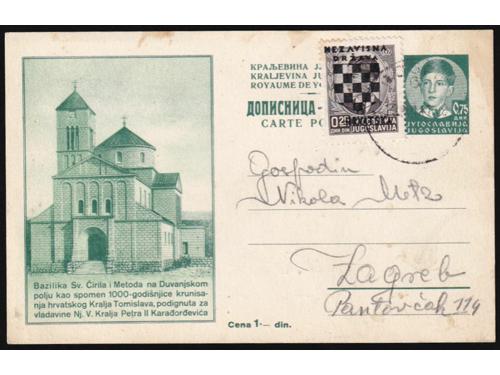 КРАЉЕВИНА J
KRALJEVINA JU
ROYAUME DE YO
ДОПИСНИЦА -
CARTE PO
NEZAVISNA
DRŽAVA
HRVATSKA
ЈУГОСЛАВИЈА
0.25 DIN ДИН JUGOSLAVIJA
0.75
ДИН
ЈУГОСЛАВИЈА
JUGOSLAVIJA
Gospodin
Nikola
Zagreb
Pantovčak 114
Bazilika Sv. Ćirila i Metoda na Duvanjskom
polju kao spomen 1000-godišnjice krunisa-
nja hrvatskog Kralja Tomislava, podignuta za
vladavine Nj. V. Kralja Petra II Karađorđevića
Cena 1·— din.